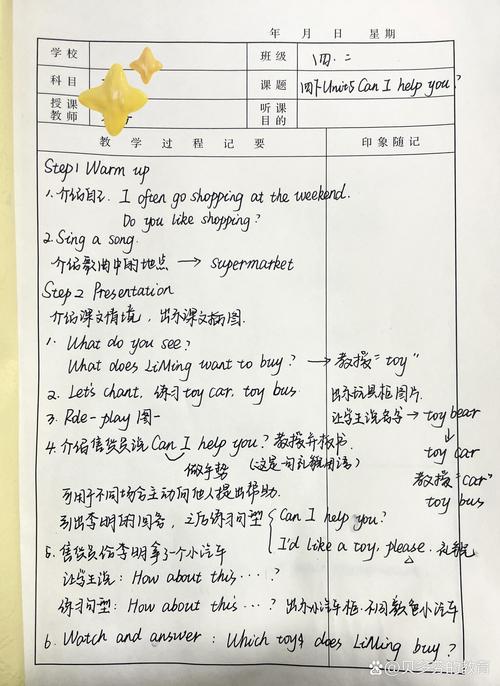 年 月 日 星期
学校 班级 四.二
科目 课题 四下Unit5 Can I help you?
授课教师 听课目的
教学过程记要 印象随记
Step1 Warm up
1.介绍自己. I often go shopping at the weekend.
Do you like shopping?
2.Sing a song.
介绍歌曲中的地点 → supermarket
Step2 Presentation
介绍课文情境，出示课文插图.
1. What do you see?
What does LiMing want to buy? → 教授“toy”
2. Let's chant，练习toy car, toy bus 出示玩具柜图片.
3. Role-play 图一 让学生说名字 → toy bear
4.介绍售货员说Can I help you?教授并板书. ↓ toy car
做手势 (这是一句礼貌用语) 教授“car”
可用于不同场合主动向他人提出帮助. toy bus
引出李明的回答，之后练习句型 { Can I help you?
I'd like a toy, please. 礼貌
5.售货员给李明拿了一个小汽车
让学生说: How about this····?
练习句型: How about this····? 出示小汽车柜.不同颜色小汽车
6. Watch and answer: Which toys does LiMing buy?